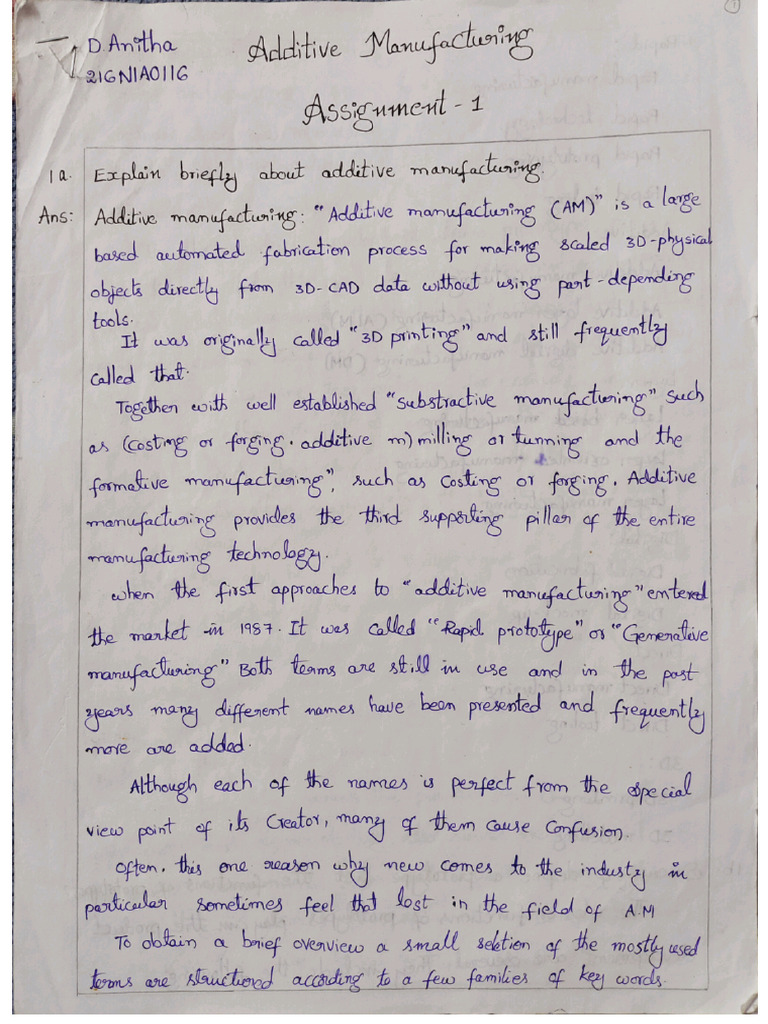 1
D. Anitha
Additive Manufacturing
216N1A0116
Assignment - 1
1a. Explain briefly about additive manufacturing.
Ans: Additive manufacturing: "Additive manufacturing (AM)" is a large
based automated fabrication process for making scaled 3D-physical
objects directly from 3D-CAD data without using part-depending
tools.
It was originally called "3D printing" and still frequently
called that.
Together with well established "substractive manufacturing" such
as (costing or forging. additive m) milling or tunning and the
formative manufacturing", such as costing or forging. Additive
manufacturing provides the third supporting pillar of the entire
manufacturing technology.
when the first approaches to "additive manufacturing" entered
the market in 1987. It was called "Rapid prototype" or "Generative
manufacturing" Both terms are still in use and in the past
years many different names have been presented and frequently
more are added.
Although each of the names is perfect from the special
view point of its Creator, many of them cause confusion.
often, this one reason why new comes to the industry in
particular sometimes feel that lost in the field of A.M
To obtain a brief overview a small seletion of the mostly used
terms are structured according to a few families of key words.